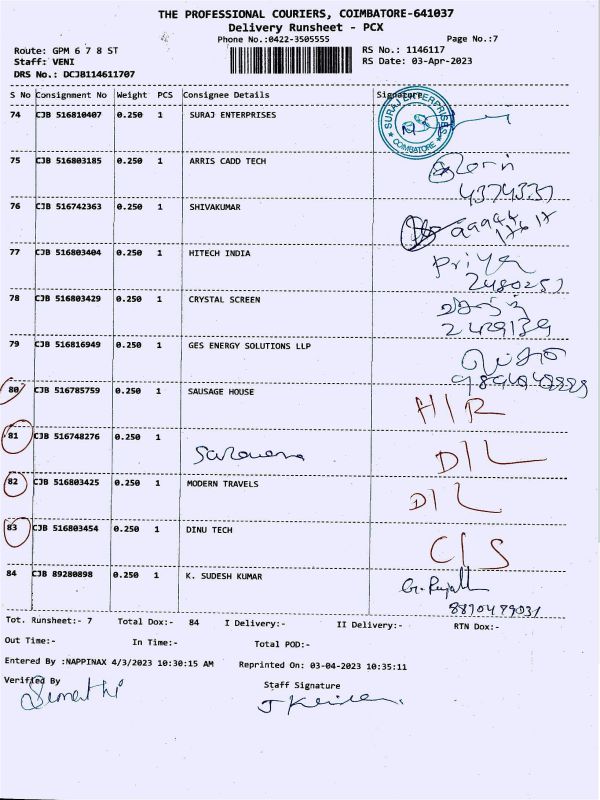 THE PROFESSIONAL COURIERS, COIMBATORE-641037
Delivery Runsheet - PCX
Phone No.:0422-3505555 Page No.:7
Route: GPM 6 7 8 ST RS No.: 1146117
Staff: VENI RS Date: 03-Apr-2023
DRS No.: DCJB114611707
S No Consignment No Weight PCS Consignee Details Signature
74 CJB 516810407 0.250 1 SURAJ ENTERPRISES
SURAJ ENTERPRISES COIMBATORE
75 CJB 516803185 0.250 1 ARRIS CADD TECH
4374337
76 CJB 516742363 0.250 1 SHIVAKUMAR
77 CJB 516803404 0.250 1 HITECH INDIA Priya
2480257
78 CJB 516803429 0.250 1 CRYSTAL SCREEN
2429139
79 CJB 516816949 0.250 1 GES ENERGY SOLUTIONS LLP
80 CJB 516785759 0.250 1 SAUSAGE HOUSE H/R
81 CJB 516748276 0.250 1 D/L
82 CJB 516803425 0.250 1 MODERN TRAVELS D/L
83 CJB 516803454 0.250 1 DINU TECH C/S
84 CJB 89280898 0.250 1 K. SUDESH KUMAR
8870479031
Tot. Runsheet:- 7 Total Dox:- 84 I Delivery:- II Delivery:- RTN Dox:-
Out Time:- In Time:- Total POD:-
Entered By :NAPPINAX 4/3/2023 10:30:15 AM Reprinted On: 03-04-2023 10:35:11
Verified By Staff Signature
Sumathi